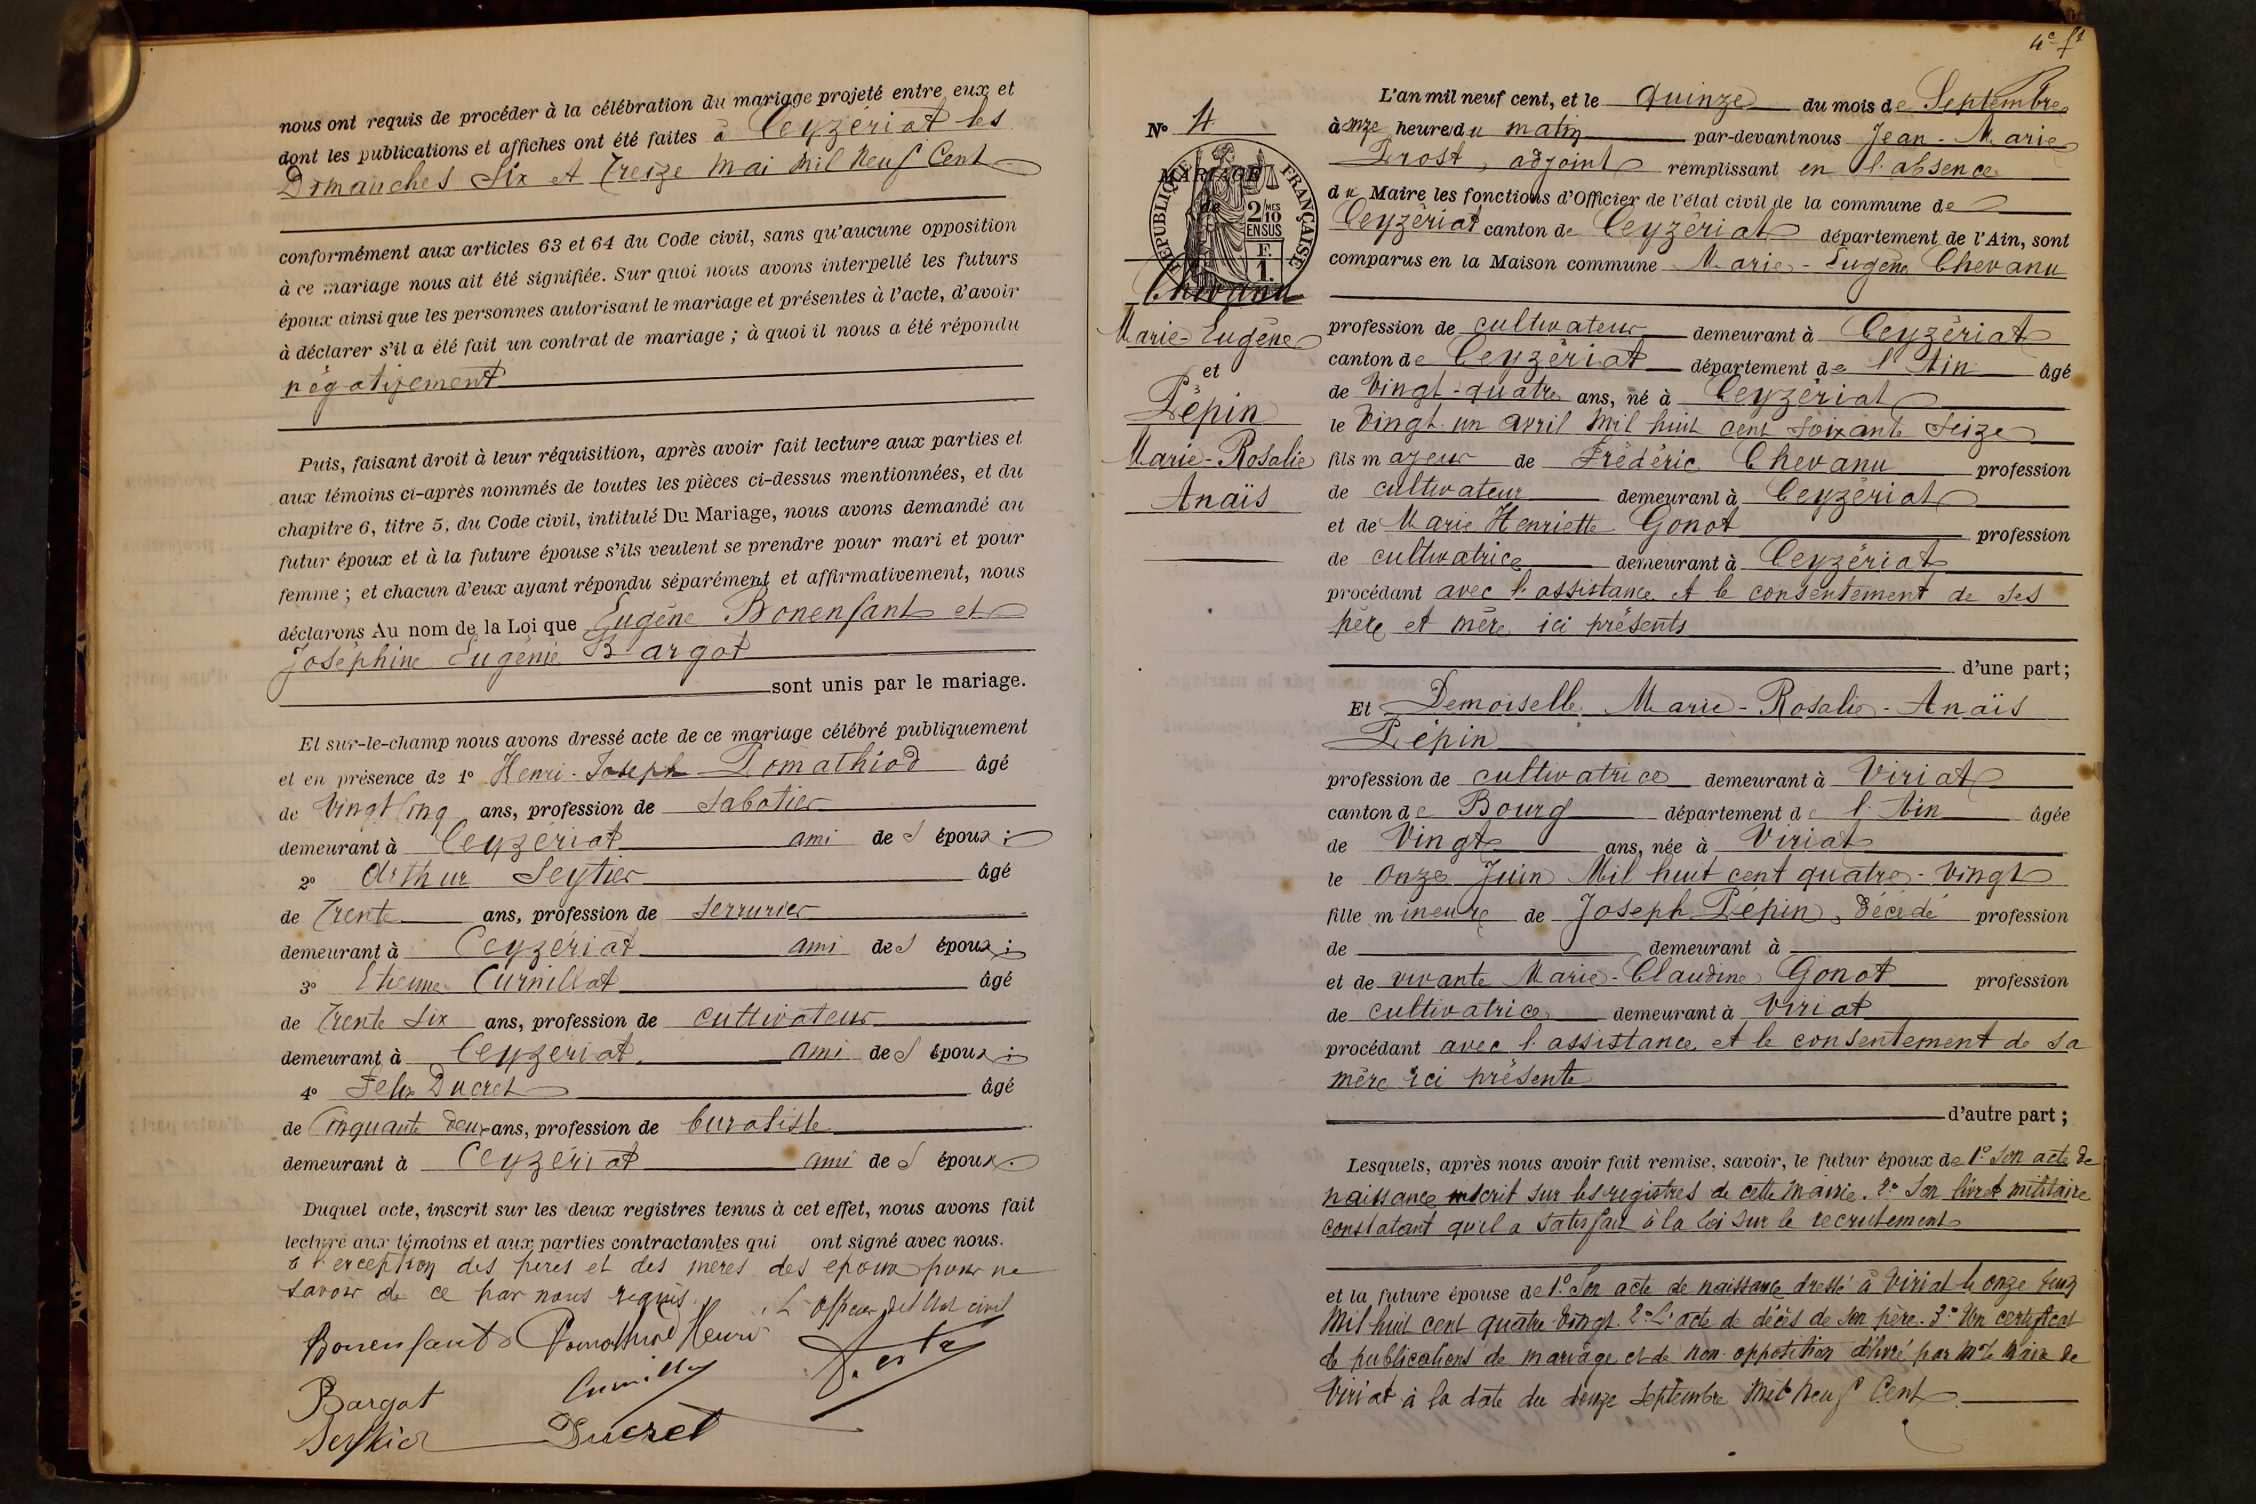 nous ont requis de procéder à la célébration du mariage projeté entre eux et
dont les publications et affiches ont été faites à Ceyzériat les
Dimanches Six et Treize Mai Mil Neuf Cent
conformément aux articles 63 et 64 du Code civil, sans qu'aucune opposition
à ce mariage nous ait été signifiée. Sur quoi nous avons interpellé les futurs
époux ainsi que les personnes autorisant le mariage et présentes à l'acte, d'avoir
à déclarer s'il a été fait un contrat de mariage ; à quoi il nous a été répondu
négativement
Puis, faisant droit à leur réquisition, après avoir fait lecture aux parties et
aux témoins ci-après nommés de toutes les pièces ci-dessus mentionnées, et du
chapitre 6, titre 5, du Code civil, intitulé Du Mariage, nous avons demandé au
futur époux et à la future épouse s'ils veulent se prendre pour mari et pour
femme ; et chacun d'eux ayant répondu séparément et affirmativement, nous
déclarons Au nom de la Loi que Eugène Bonenfant et
Joséphine Eugénie Bargot
sont unis par le mariage.
Et sur-le-champ nous avons dressé acte de ce mariage célébré publiquement
et en présence de 1° Henri-Joseph Pomathiod âgé
de Vingt Cinq ans, profession de Sabotier
demeurant à Ceyzériat ami des époux ;
2° Arthur Seytier âgé
de Trente ans, profession de Serrurier
demeurant à Ceyzériat ami des époux ;
3° Etienne Curnillat âgé
de Trente Six ans, profession de cultivateur
demeurant à Ceyzériat ami des époux ;
4° Felix Ducret âgé
de Cinquante Deux ans, profession de buraliste
demeurant à Ceyzériat ami des époux.
Duquel acte, inscrit sur les deux registres tenus à cet effet, nous avons fait
lecture aux témoins et aux parties contractantes qui ont signé avec nous.
à l'exception des pères et des mères des époux pour ne
savoir de ce par nous requis. L'officier de l'Etat civil
Bonenfant Pomathiod Henri
Bargot
Seytier Ducret
4e ft
N° 4
MARIAGE
de
RÉPUBLIQUE FRANÇAISE
2/10 MES
EN SUS
F.
1.
Chevanu
Marie-Eugène
et
Pépin
Marie-Rosalie
Anaïs
L'an mil neuf cent, et le quinze du mois de Septembre
à onze heures du matin par-devant nous Jean-Marie
Prost, adjoint remplissant en l'absence
du Maire les fonctions d'Officier de l'état civil de la commune de
Ceyzériat canton de Ceyzériat département de l'Ain, sont
comparus en la Maison commune Marie-Eugène Chevanu
profession de cultivateur demeurant à Ceyzériat
canton de Ceyzériat département de l'Ain âgé
de Vingt-quatre ans, né à Ceyzériat
le Vingt un avril Mil huit cent soixante seize
fils mayeur de Frédéric Chevanu profession
de cultivateur demeurant à Ceyzériat
et de Marie Henriette Gonot profession
de cultivatrice demeurant à Ceyzériat
procédant avec l'assistance et le consentement de ses
père et mère ici présents
d'une part ;
Et Demoiselle Marie-Rosalie-Anaïs
Pépin
profession de cultivatrice demeurant à Viriat
canton de Bourg département de l'Ain âgée
de Vingt ans, née à Viriat
le onze Juin Mil huit cent quatre-vingt
fille mineure de Joseph Pépin, Décédé profession
de demeurant à
et de vivante Marie-Claudine Gonot profession
de cultivatrice demeurant à Viriat
procédant avec l'assistance et le consentement de sa
mère ici présente
d'autre part ;
Lesquels, après nous avoir fait remise, savoir, le futur époux de 1° Son acte de
naissance inscrit sur les registres de cette Mairie. 2° Son livret militaire
constatant qu'il a satisfait à la Loi sur le recrutement
et la future épouse de 1° Son acte de naissance dressé à Viriat le onze Juin
Mil huit cent quatre vingt. 2° L'acte de décès de son père. 3° Un certificat
de publications de mariage et de non-opposition délivré par Mr le Maire de
Viriat à la date du douze Septembre Mil Neuf Cent